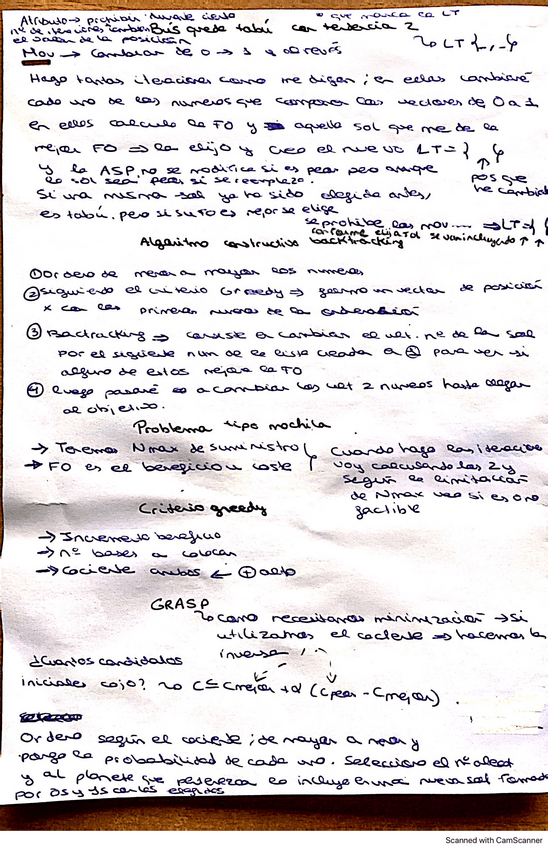 Atributo → prohibir durante cierto
nº de iteraciones también
el valor de la posición
Búsqueda tabú con tenencia 2
que marca la LT
Mov → Cambiar de 0 → 1 o al revés
LT {-,-}
Hago tantas iteraciones como me digan; en ellas cambiaré
cada uno de los numeros que componen los vectores de 0 a 1
en ellos calculo la FO y aquella sol que me de la
mejor FO ⇒ la elijo y creo el nuevo LT = { }
y la ASP no se modifica si es peor pero aunque
la sol sea peor si se reemplazo.
pos que
he cambiado
Si una misma sol ya ha sido elegida antes,
es tabú. pero si su FO es mejor se elige
se prohibe los mov.... ⇒ LT = {
conforme elija sol se van incluyendo ↑ ↑
Algoritmo constructivo backtracking
① Ordeno de menor a mayor los numeros
② siguiendo el criterio Greedy ⇒ formo un vector de posición
x con los primeros numeros de la
③ Backtracking ⇒ consiste a cambiar el ult. nº de la sol
por el siguiente num de la lista creada a ① para ver si
alguno de estos mejora la FO
④ luego pasaré a cambiar los ult 2 numeros hasta llegar
al objetivo.
Problema tipo mochila
→ Tenemos Nmax de suministro
→ FO es el beneficio u coste
Cuando hago las iteraciones
voy calculando las Z y
según la limitación
de Nmax veo si es o no
factible
Criterio greedy
→ Incremento beneficio
→ nº bases a colocar
→ Cociente ambos ← ⊕ alto
GRASP
como necesitamos minimización → si
utilizamos el cociente ⇒ hacemos la
inversa
¿Cuantos candidatos
iniciales cojo? C ≤ Cmejor + α (Cpeor - Cmejor)
Ordeno según el cociente; de mayor a menor y
pongo la probabilidad de cada uno. Selecciono el nº aleat
y al planeta que pertenezca lo incluye en una nueva sol formada
por 0s y 1s con los elegidos
Scanned with CamScanner